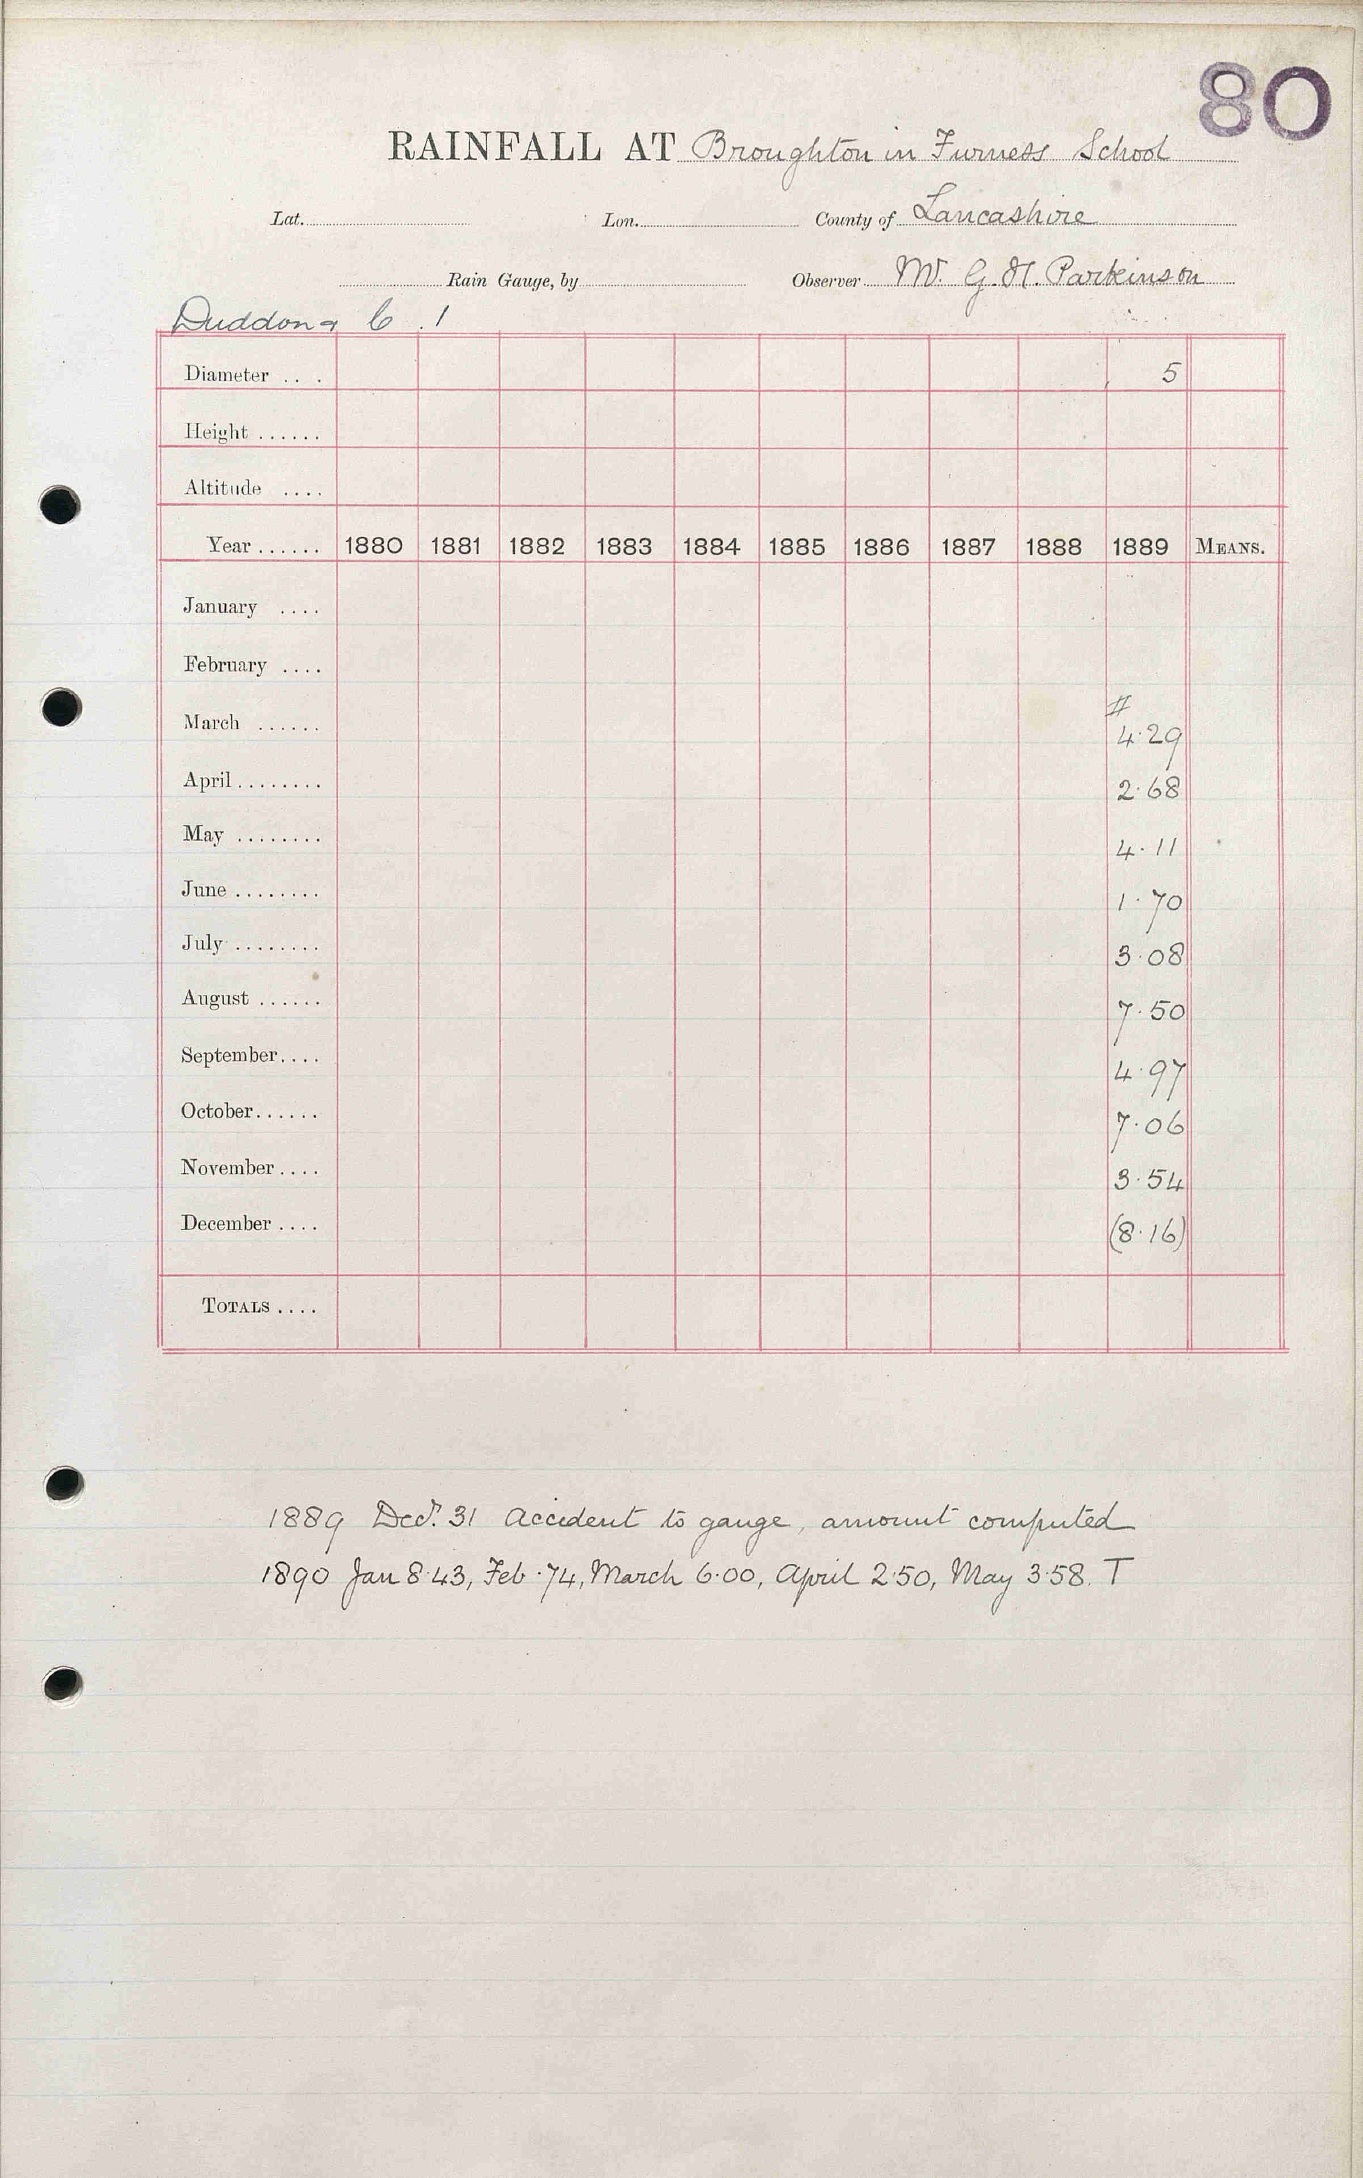 80
RAINFALL AT Broughton in Furness School
Lat. Lon. County of Lancashire
Rain Gauge, by Observer Mr. G. H. Parkinson
Duddon 1
Diameter 5
Height
Altitude
Year 1880 1881 1882 1883 1884 1885 1886 1887 1888 1889 MEANS.
January
February
#
March 4.29
April 2.68
May 4.11
June 1.70
July 3.08
August 7.50
September 4.97
October 7.06
November 3.54
December (8.16)
TOTALS
1889 Decr. 31 accident to gauge, amount computed
1890 Jan 8.43, Feb .74, March 6.00, April 2.50, May 3.58. T